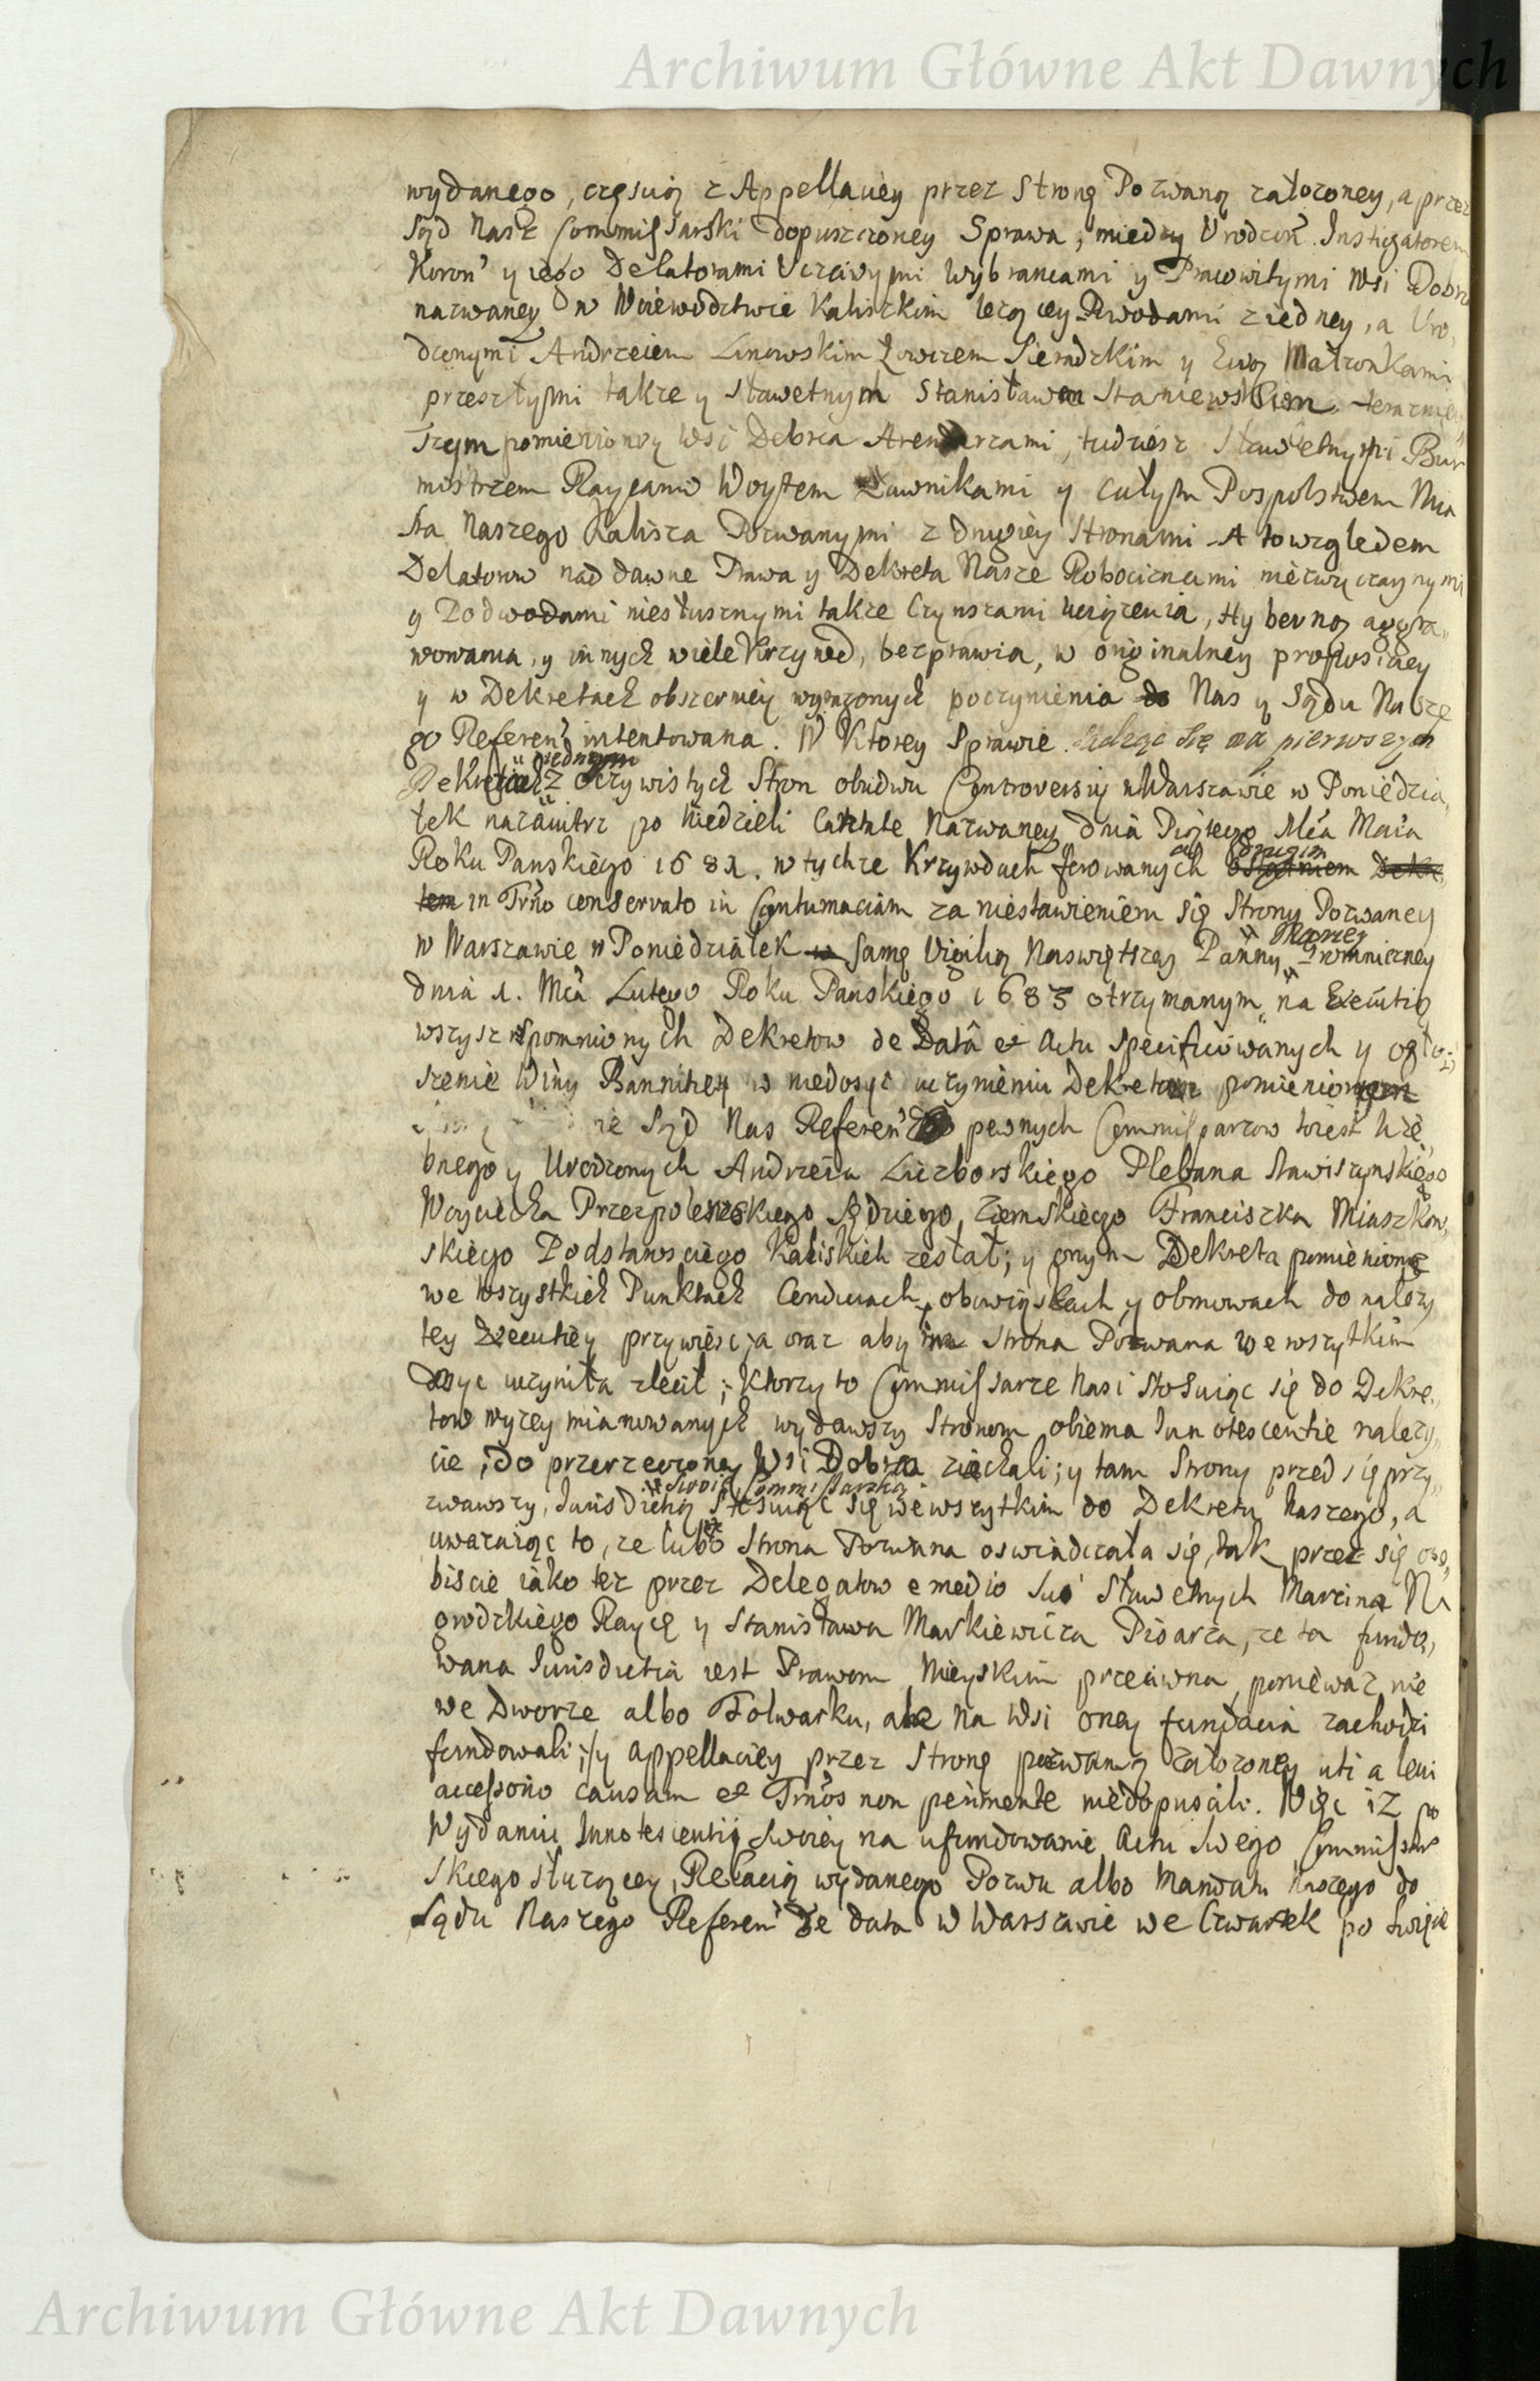 Archiwum Główne Akt Dawnych
wydanego, częścią z Appellaciey przez Stronę Pozwaną założoney, a przez
Sąd Nasz Commissarski dopuszczoney Sprawa, między Urodzoñ Instigatorem
Koroñ y iego Delatorami Uczciwymi Wybrancami y Pracowitymi Wsi Dobrz
nazwaney w Woiewodztwie Kaliszkim leżącey Powodami z iedney, a Uro,
dzonymi Andrzeiem Linowskim Łowczem Sieradzkim y Ewą Małżonkami
przeszłymi także y sławetnym Stanisławem Staniewskim
szym pomienioney Wsi Debrza Arendarzami, tudziesz Sławetnymi Bur
mistrzem Raycami Woytem Ławnikami y całym Pospolstwem Mia
sta Naszego Kalisza Pozwanymi z drugiey Stronami A to względem
Delatorow nad dawne Prawa y Dekreta Nasze Robociznami niezwyczaynymi
y Podwodami niesłusznymi także Czynszami uciążenia, Hybevną aggra,,
wowania, y innych wiele Krzywd, bezprawia, w originalney proposiciey
y w Dekretach obszerniey wyrażonych poczynienia do Nas y Sądu Nasze
go Refereñ intentowana. W Ktorey Sprawie pierwszym
jednym
Dekretach z oczywistych Stron obudwu Controversiy w Warszawie w Poniedzia,
łek nazaiutrz po Niedzieli Cantate Nazwaney dnia Piątego Mca Maia
drugim
Roku Panskiego 1681. w tychże Krzywdach ferowanych ostatniem Dekre
tem in Trño conservato in Contumaciam za niestawieniem się Strony Pozwaney
Maryey
w Warszawie w Poniedziałek w samę Vigilią Naswiętszey Panny Gromniczney
dnia 1. Mca Lutego Roku Panskiego 1683 otrzymanym na Exeutią
wszysz wspomnionych Dekretow de Datâ et Actu specificowanych y ogło,
szenie Winy Banniciey w niedosyć uczynieniu Dekretom pomienionym
Sąd Nas Refereñ pewnych Commissarzow toiest Wiele
bnego y Urodzonych Andrzeia Liczborskiego Plebana Stawiszynskiego
Woyciecha Przespolewskiego Sędziego Ziemskiego Franciszka Miaszkow,
skiego Podstarosciego Kaliskich zesłał; y onym Dekreta pomienione
we wszystkich Punktach Conditiach, obowiąskach y obmowach do należy
tey Executiey przywiesc, a oraz aby im Strona Pozwana we wszytkim
dosyc uczyniła zlecił; Ktorzy to Commissarze Nasi stosuiąc się do Dekre,,
tow wyzey mianowanych wydawszy Stronom obiema Innotescentie należy,,
cie, do przerzeczoney Wsi Dobrza ziechali; y tam Strony przed się przy,,
swoię Commissarską
zwawszy, Iurisdictią Stosuiąc się we wszytkim do Dekretu Naszego, a
uważaiąc to, że lubo Strona Pozwana oswiadczała się, tak przez się oso,
biscie iako tez przez Delegatow e medio sui Sławetnych Marcina No
grodzkiego Raycę y Stanisława Markiewicza Pisarza, że ta fundo,
wana Iurisdictia iest Prawom Mieyskim przeciwna, poniewaz nie
we Dworze albo Folwarku, ale na Wsi oney fundacia zachodzi
fundowali; y appellaciey przez Stronę pozwaną założoney uti a levi
accessorio causam et Trñôs non perimente niedopuscili. Więc iz po
Wydaniu Innotescentiy swoiey na ufundowanie Actu swego Commissar
skiego służącey, Relacią wydanego Pozwu albo Mandatu Naszego do
Sądu Naszego Refereñ de data w Warszawie we Czwartek po Święcie
Archiwum Główne Akt Dawnych